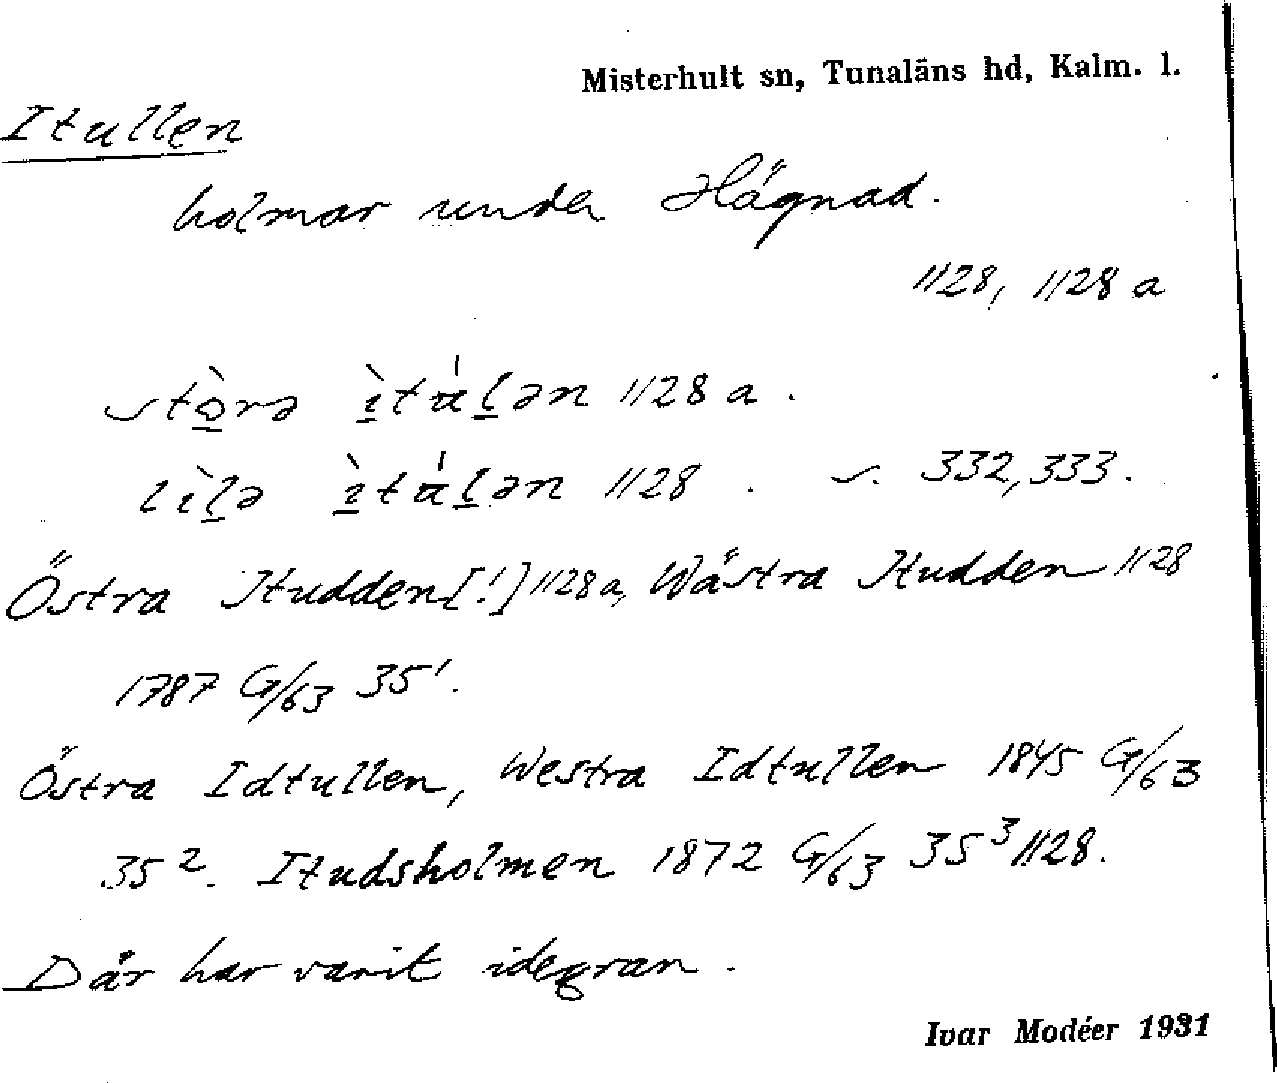 Misterhult sn, Tunaläns hd, Kalm. l.
Itullen
holmar under Hägnad.
1128, 1128 a
1128 a.
1128. s. 332, 333.
Östra Itudden [!] 1128 a, Wästra Itudden 1128
1787 G/63 35¹.
Östra Idtullen, Westra Idtullen 1845 G/63
35². Itudsholmen 1872 G/63 35³ 1128.
Där har varit idegran.
Ivar Modéer 1931